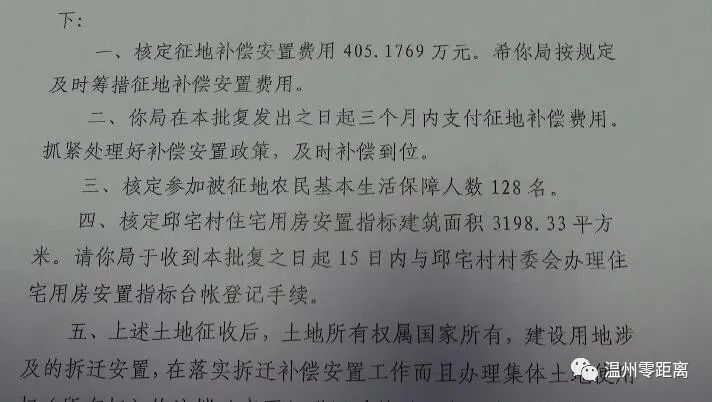 下：
一、核定征地补偿安置费用 405.1769 万元。希你局按规定
及时筹措征地补偿安置费用。
二、你局在本批复发出之日起三个月内支付征地补偿费用。
抓紧处理好补偿安置政策，及时补偿到位。
三、核定参加被征地农民基本生活保障人数 128 名。
四、核定邱宅村住宅用房安置指标建筑面积 3198.33 平方
米。请你局于收到本批复之日起 15 日内与邱宅村村委会办理住
宅用房安置指标台帐登记手续。
五、上述土地征收后，土地所有权属国家所有，建设用地涉
及的拆迁安置，在落实拆迁补偿安置工作而且办理集体土地使用
温州零距离